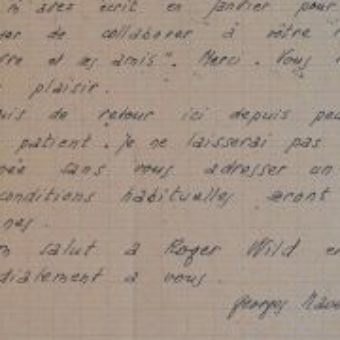 m'avez écrit en janvier pour
de collaborer à votre
et ses amis". Merci. Vous
plaisir.
de retour ici depuis peu
patient. je ne laisserai pas
sans vous adresser un
conditions habituelles seront
salut à Roger Wild
à vous.
Georges